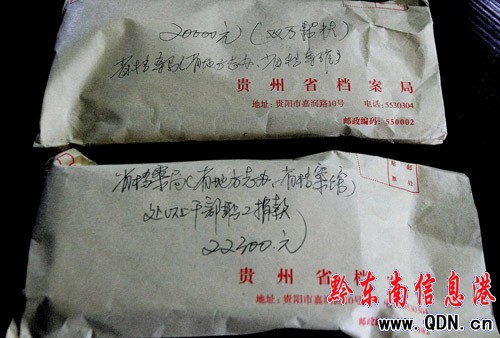 20000元（双万帮扶）
省档案局（省地方志办、省档案馆）
贵州省档案局
地址：贵阳市嘉润路10号 电话：5530304
邮政编码：550002
省档案局（省地方志办、省档案馆）
处以下干部职工捐款
22300.元
贵州省档
地址：贵阳市嘉润路10号
邮政
黔东南信息港
www.QDN.cn